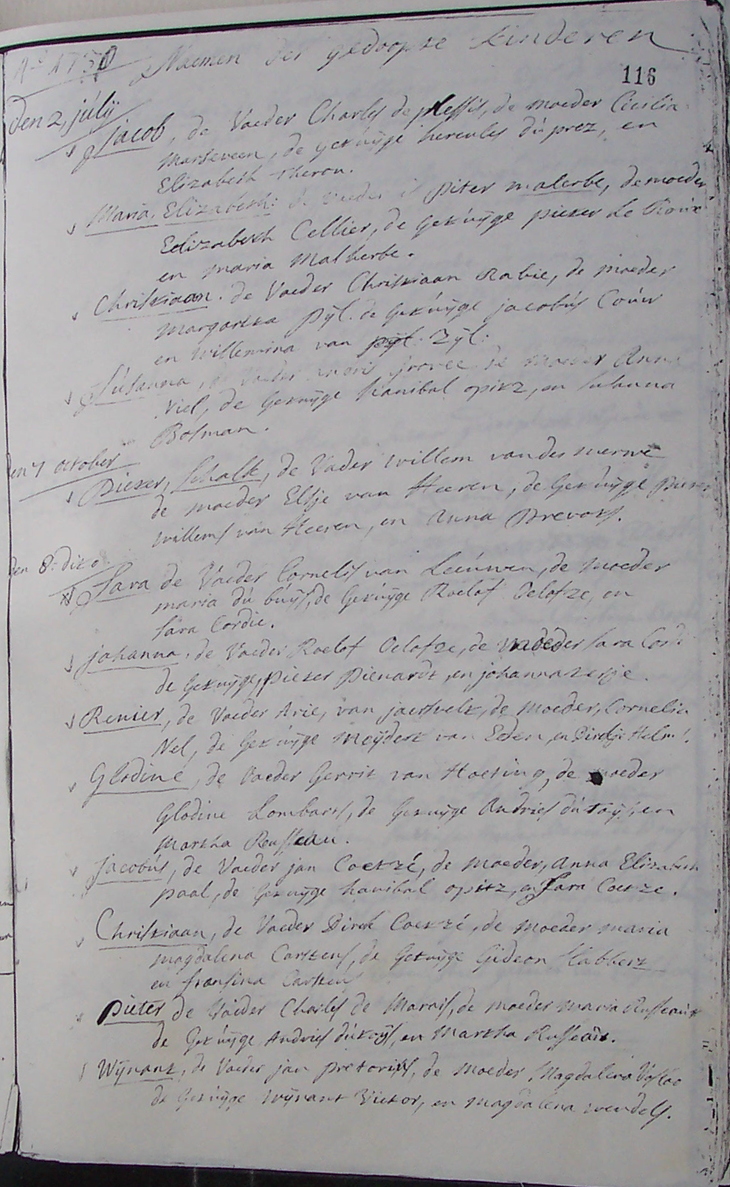 Ao 1730 Naemen der gedoopte kinderen
116
Den 2 júlÿ
Jacob, de Vaeder Charles de plessis, de moeder Cicilia
Marseveen, de getúÿge hercules dú prez, en
Elizabeth theron.
Maria, Elizabeth: de Vaeder is Piter malerbe, de moeder
Edlizabeth Cellier, de Getúÿge pieter Le Roúx
en maria Malherbe.
Christiaan. de Vaeder Christiaan Rabie, de moeder
Margareta Pÿl. de Getúÿge jacobús Coúw
en willemina van Zÿl.
Súsanna, de vaeder grové de moeder Anna
Niel, de Getúÿge hanibal opitz, en Johanna
Bosman.
den 7 october
Pieter, Schalk, de Vader willem vander merwe
de moeder Elsje van Heeren, de Getúÿge pieter
willems van Heeren, en Anna Prevots.
den 8 dito
Sara de Vaeder Cornelis van Leeúwen, de Moeder
maria dú búÿs, de Getúÿge Roelof Oelofze, en
Sara Cordie.
Johanna. de Vaeder Roelof Oelofze, de moeder Sara Cordi
de Getúÿge, Pieter Pienardt, en johanna
Renier, de Vaeder Arie, van jaersvelt, de Moeder, Cornelia
Nel, de Getúÿge Meÿdert van Eeden, en Dirkje Helm.
Glodine, de Vaeder Gerrit van Hoeting, de moeder
Glodine Lombard, de Getúÿge Andries dú toÿs, en
Martha Roússeaú.
Jacobús, de Vaeder jan Coetzé, de Moeder, Anna Elizabeth
paal, de Getúÿge hanibal opitz, en Sara Coetze.
Christiaan, de Vaeder Dirck Coetzé, de moeder maria
magdalena Carstens, de Getúÿge Gideon Slabbert
en fransina Carstens
Pieter de Vaeder Charles de Marais, de moeder maria Rússeaúx
de Getúÿge Andries dútoÿs, en Martha Rússeaú.
Wÿnant, de Vaeder jan pretoriús, de Moeder, Magdalena
de Getúÿge wÿnant Victor, en magdalena wendels.